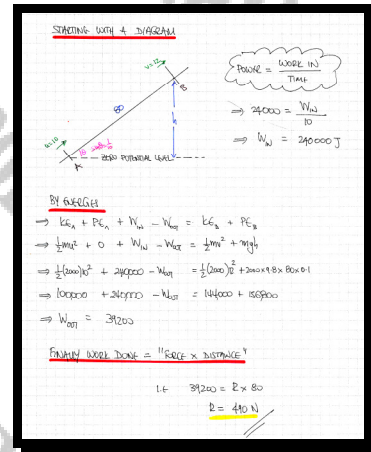 STARTING WITH A DIAGRAM
POWER = WORK IN / TIME
u=12
B
80
h
⇒ 24000 = W_IN / 10
⇒ W_IN = 240000 J
u=10
A
ZERO POTENTIAL LEVEL
BY ENERGIES
⇒ KE_A + PE_A + W_IN - W_OUT = KE_B + PE_B
⇒ ½mu² + 0 + W_IN - W_OUT = ½mv² + mgh
⇒ ½(2000)10² + 240000 - W_OUT = ½(2000)12² + 2000×9.8×80×0.1
⇒ 100000 + 240000 - W_OUT = 144000 + 156800
⇒ W_OUT = 39200
FINALLY WORK DONE = "FORCE × DISTANCE"
I.E 39200 = R × 80
R = 490 N